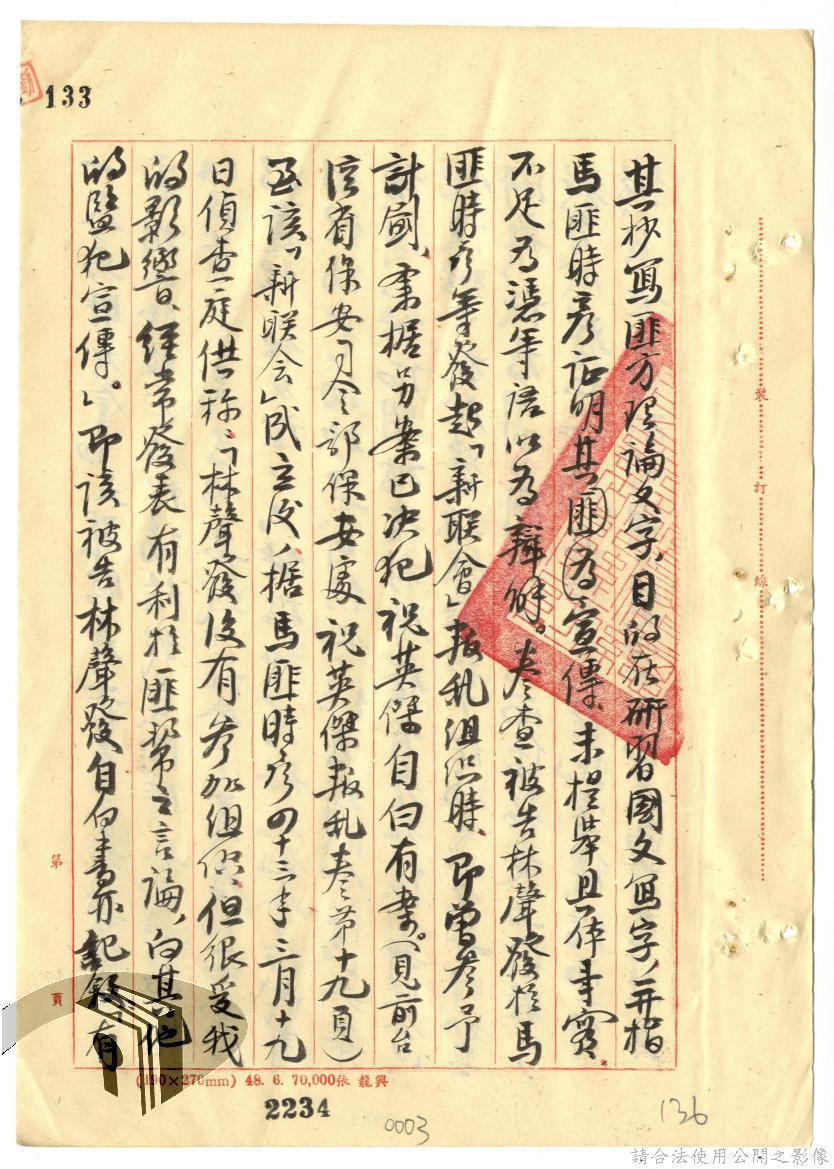 133
其抄寫匪方理論文字,目的在研習國文寫字,并指
馬匪時彥証明其匪為宣傳,未提舉具体事實,
不足為憑等語以為辯解。卷查被告林聲發於馬
匪時彥等發起「新联會」叛乱组织時、即曾參予
計劃、業据另案已决犯祝英傑自白有案。(見前台
湾省保安司令部保安處祝英傑叛乱卷第十九頁)
至該「新联会」成立後,据馬匪時彥四十三年三月十九
日偵查庭供称:「林聲發沒有參加组织、但很受我
的影響、经常發表有利於匪幫之言論,向其他
的監犯宣傳。」即該被告林聲發自白書亦記録「有
裝
訂
線
第
頁
(190×270mm) 48. 6. 70,000張 龍興
2234
0003
136
請合法使用公開之影像